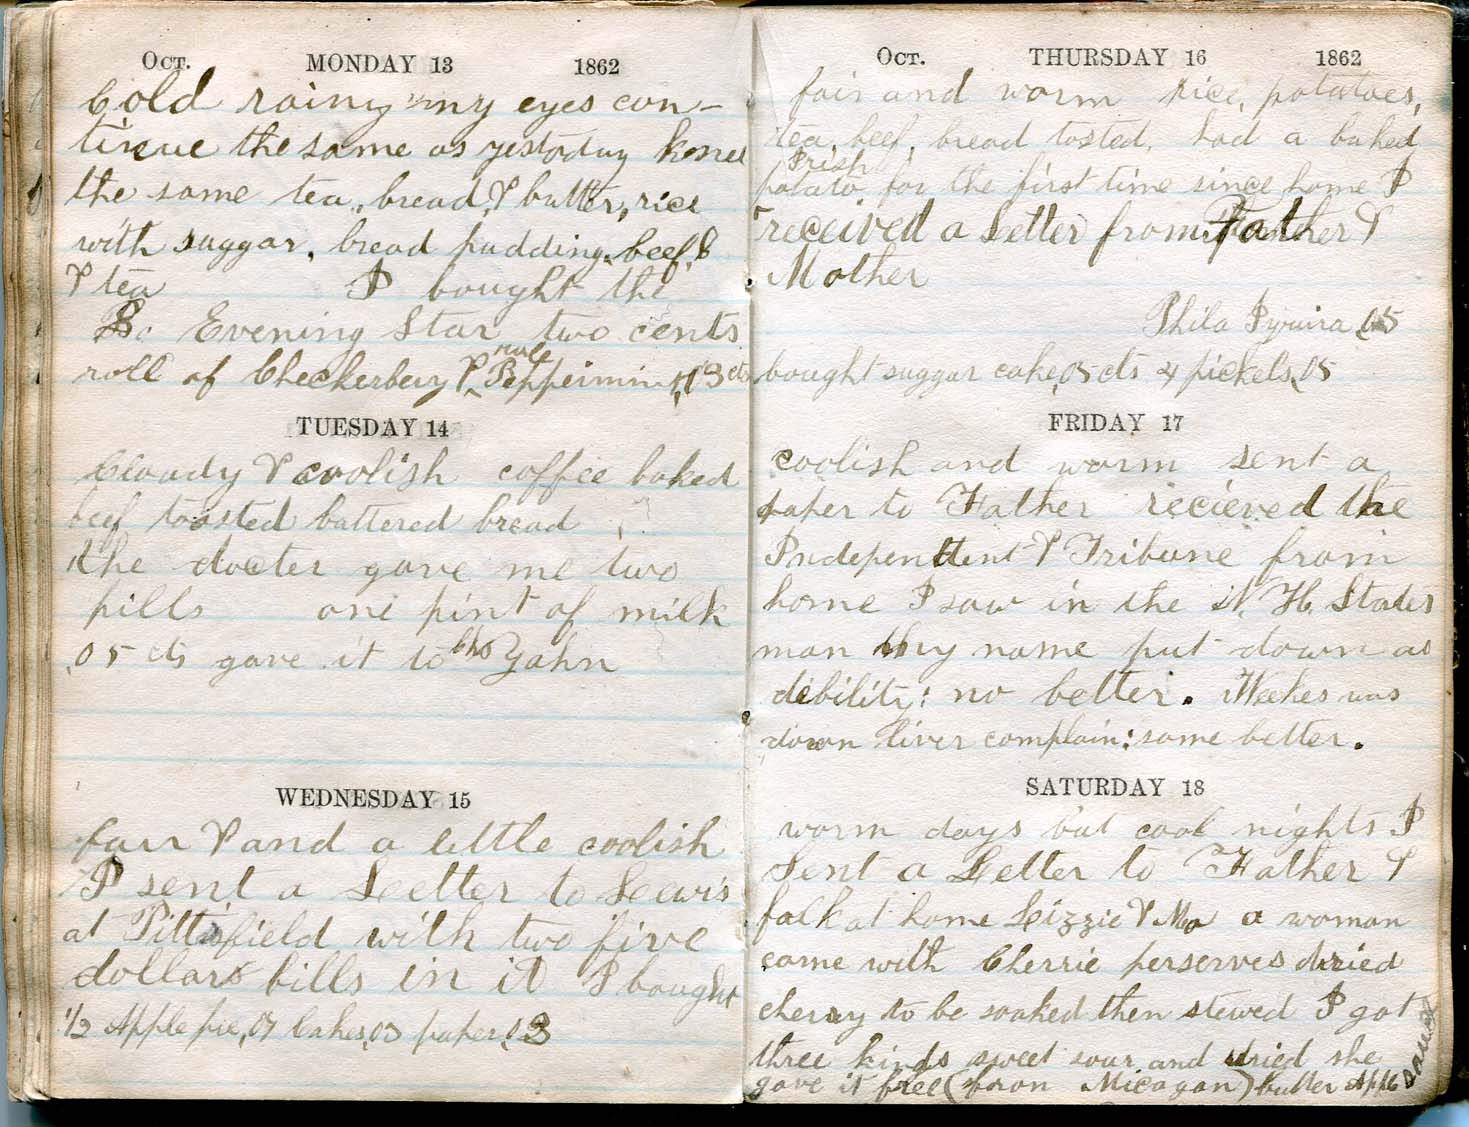 Oct. MONDAY 13 1862
Cold rainy my eyes con-
tinue the same as yestoday
the same tea, bread, & butter, rice
with suggar, bread pudding, beef,
& tea I bought the
Evening Star two cents
roll of Checkerbery & role Peppermint, 03 cts
TUESDAY 14
Cloudy & coolish coffee baked
beef toasted buttered bread
the docter gave me two
pills one pint of milk
,05 cts gave it to Chs Yahn
WEDNESDAY 15
fair & and a little coolish
I sent a Letter to Lewis
at Pittsfield with two five
dollars bills in it I bought
1/2 Apple pie, 07 Cakes, 03 paper, 03
Oct. THURSDAY 16 1862
fair and worm rice, potatoes,
tea, beef, bread tosted, had a baked
Irish
potato for the first time since home I
received a Letter from Father &
Mother
Phila 05
bought suggar cake, 05 cts 4 pickels, 05
FRIDAY 17
coolish and worm sent a
paper to Father recieved the
Independent & Tribune from
home I saw in the N. H. States
man my name put down as
debility: no better. Weekes was
down liver complain: some better.
SATURDAY 18
worm days but cool nights I
Sent a Letter to Father &
folk at home Lizzie & Mo a woman
come with Cherrie perserves dried
cherry to be soaked then stewed I got
three kinds sweet sour and dried she
gave it free (from Micagan) butter Apple
sauce